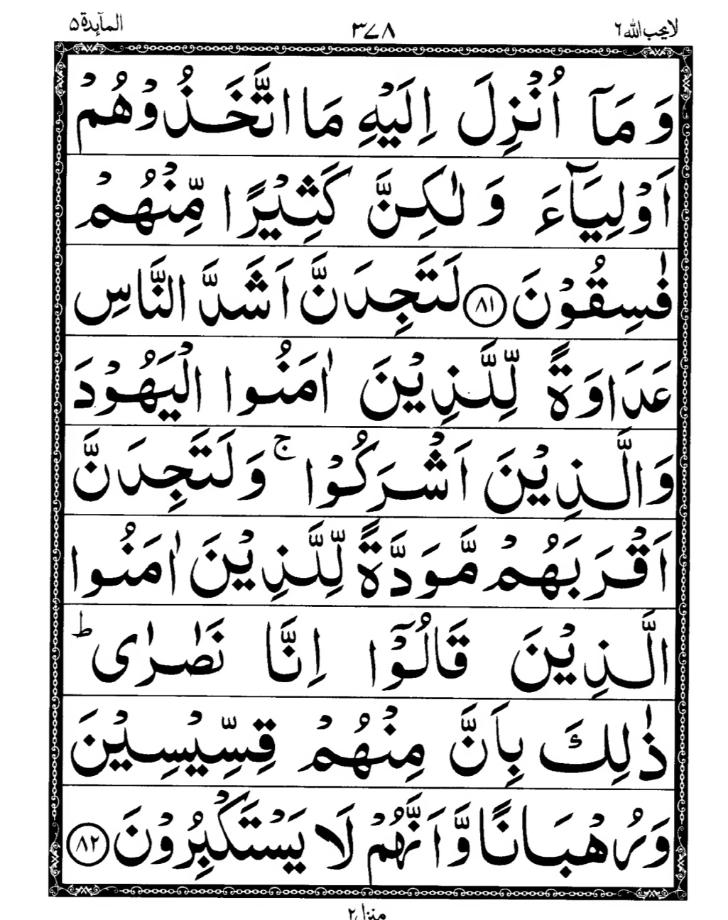 لا یحب اللہ ٦ ٣٧٨ المآئدة ٥
وَ مَاۤ اُنْزِلَ اِلَیْهِ مَا اتَّخَذُوْهُمْ
اَوْلِیَآءَ وَ لٰكِنَّ كَثِیْرًا مِّنْهُمْ
فٰسِقُوْنَ ﴿٨١﴾ لَتَجِدَنَّ اَشَدَّ النَّاسِ
عَدَاوَةً لِّلَّذِیْنَ اٰمَنُوا الْیَهُوْدَ
وَالَّذِیْنَ اَشْرَكُوْا ۚ وَلَتَجِدَنَّ
اَقْرَبَهُمْ مَّوَدَّةً لِّلَّذِیْنَ اٰمَنُوا
الَّذِیْنَ قَالُوْۤا اِنَّا نَصٰرٰی ؕ
ذٰلِكَ بِاَنَّ مِنْهُمْ قِسِّیْسِیْنَ
وَرُهْبَانًا وَّاَنَّهُمْ لَا یَسْتَكْبِرُوْنَ ﴿٨٢﴾
منزل ٢